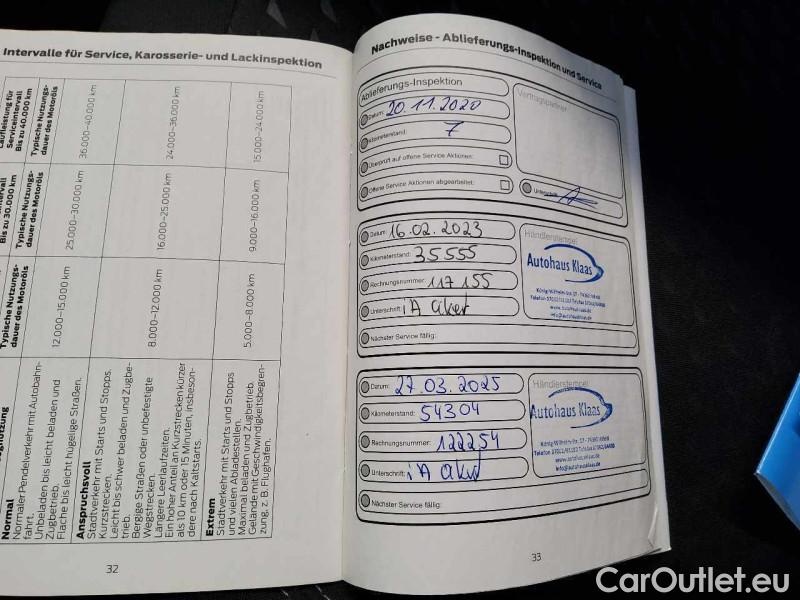 Intervalle für Service, Karosserie- und Lackinspektion
Laufleistung für
Serviceintervall
Bis zu 40.000 km
Typische Nutzungs-
dauer des Motoröls
36.000–40.000 km
24.000–36.000 km
15.000–24.000 km
Bis zu 30.000 km
Typische Nutzungs-
dauer des Motoröls
25.000–30.000 km
16.000–25.000 km
9.000–16.000 km
Typische Nutzungs-
dauer des Motoröls
12.000–15.000 km
8.000–12.000 km
5.000–8.000 km
Normal
Normaler Pendelverkehr mit Autobahn-
fahrt.
Unbeladen bis leicht beladen und
Zugbetrieb.
Flache bis leicht hügelige Straßen.
Anspruchsvoll
Stadtverkehr mit Starts und Stopps
Kurzstrecken.
Leicht bis schwer beladen und Zugbe-
trieb.
Bergige Straßen oder unbefestigte
Wegstrecken.
Längere Leerlaufzeiten.
Ein hoher Anteil an Kurzstrecken kürzer
als 10 km oder 15 Minuten, insbeson-
dere nach Kaltstarts.
Extrem
Stadtverkehr mit Starts und Stopps
und vielen Abladestellen.
Maximal beladen und Zugbetrieb.
Gelände mit Geschwindigkeitsbegren-
zung, z. B. Flughäfen.
32
Nachweise - Ablieferungs-Inspektion und Service
Ablieferungs-Inspektion
Vertragspartner
Datum: 20.11.2020
Kilometerstand: 7
Überprüft auf offene Service Aktionen:
Offene Service Aktionen abgearbeitet:
Unterschrift
Datum: 16.02.2023
Händlerstempel
Kilometerstand: 35555
Autohaus Klaas
Rechnungsnummer: 117155
info@autohausklaas.de
Unterschrift: iA
Nächster Service fällig:
Datum: 27.03.2025
Händlerstempel
Kilometerstand: 54304
Autohaus Klaas
Rechnungsnummer: 122254
info@autohausklaas.de
Unterschrift: iA
Nächster Service fällig:
33
CarOutlet.eu